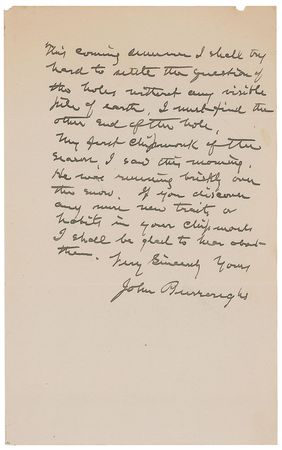 This coming summer I shall try
hard to settle the question of
the holes without any visible
pile of earth. I must find the
other end of the hole.
My first chipmunk of the
season, I saw this morning.
He was running briskly over
the snow. If you discover
any more new traits or
habits in your chipmunk
I shall be glad to hear about
them. Very Sincerely Yours
John Burroughs